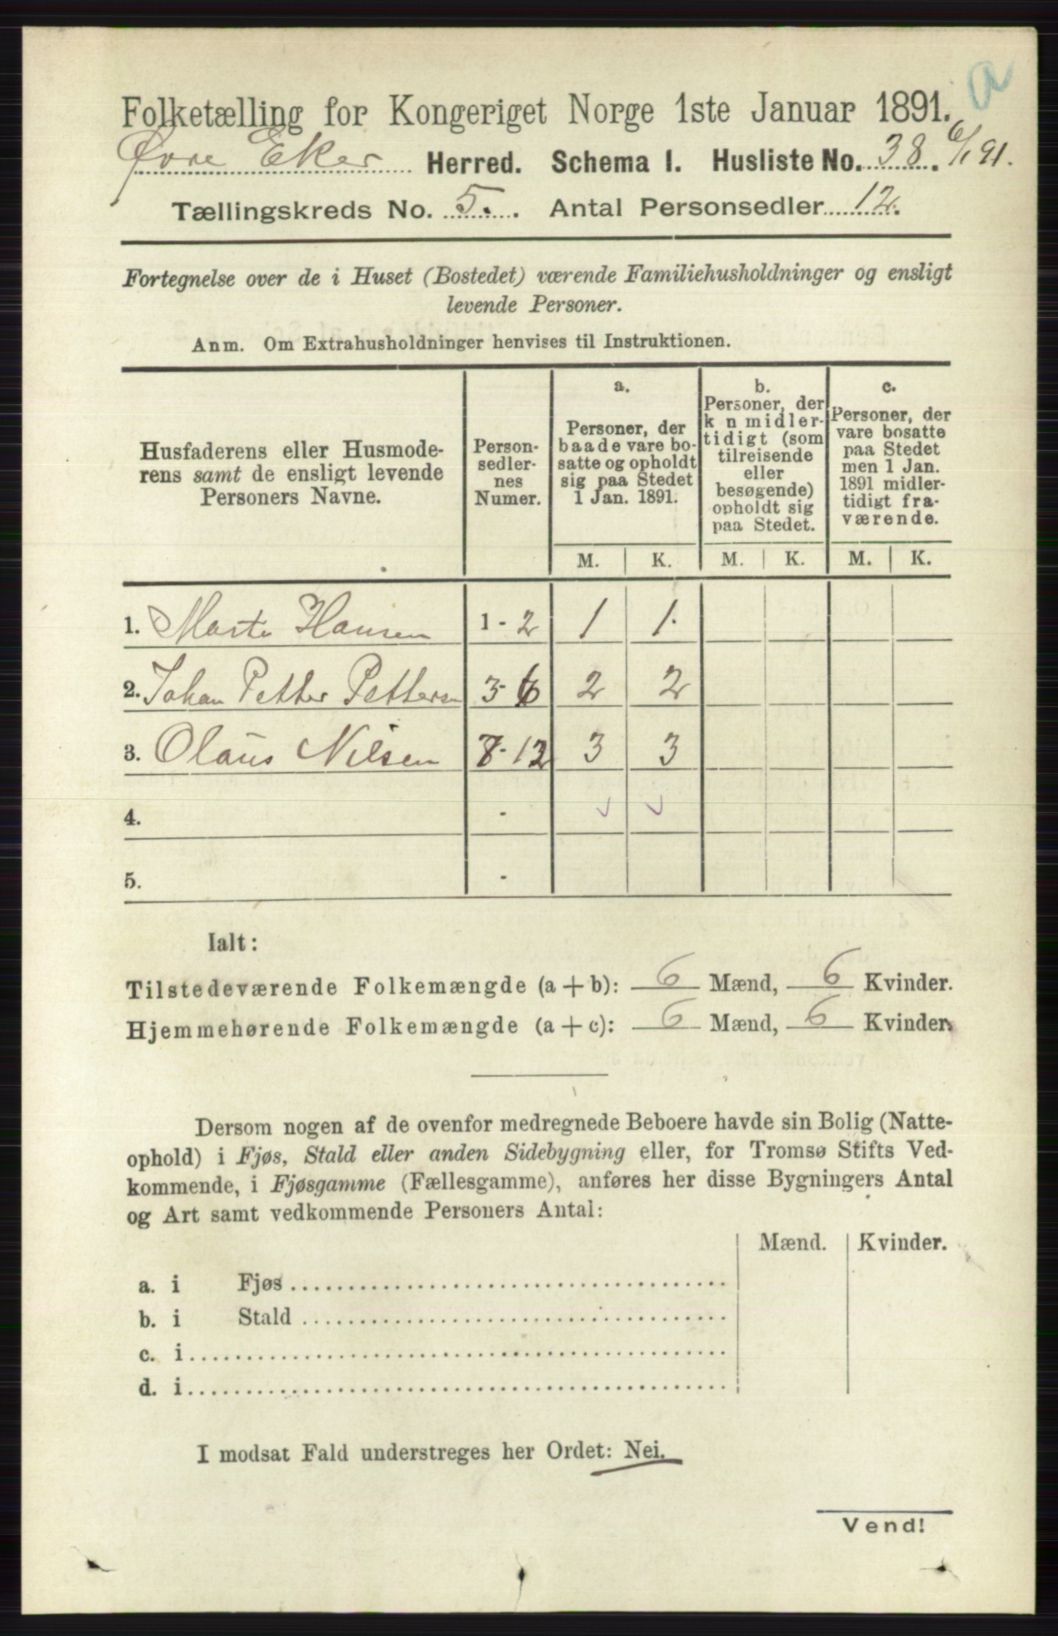 a
Folketælling for Kongeriget Norge 1ste Januar 1891.
Øvre Eker Herred. Schema I. Husliste No. 38. 6/1 91.
Tællingskreds No. 5. Antal Personsedler 12.
Fortegnelse over de i Huset (Bostedet) værende Familiehusholdninger og ensligt
levende Personer.
Anm. Om Extrahusholdninger henvises til Instruktionen.
Husfaderens eller Husmode-
rens samt de ensligt levende
Personers Navne.
Person-
sedler-
nes
Numer.
a.
Personer, der
baade vare bo-
satte og opholdt
sig paa Stedet
1 Jan. 1891.
b.
Personer, der
k n midler-
tidigt (som
tilreisende
eller
besøgende)
opholdt sig
paa Stedet.
c.
Personer, der
vare bosatte
paa Stedet
men 1 Jan.
1891 midler-
tidigt fra-
værende.
M. K. M. K. M. K.
1. Marte Hansen 1-2 1 1.
2. Johan Petter Pettersen 3-6 2 2
3. Olaus Nilsen 7-12 3 3
4. -
5. -
Ialt:
Tilstedeværende Folkemængde (a+b): 6 Mænd, 6 Kvinder.
Hjemmehørende Folkemængde (a+c): 6 Mænd, 6 Kvinder.
Dersom nogen af de ovenfor medregnede Beboere havde sin Bolig (Natte-
ophold) i Fjøs, Stald eller anden Sidebygning eller, for Tromsø Stifts Ved-
kommende, i Fjøsgamme (Fællesgamme), anføres her disse Bygningers Antal
og Art samt vedkommende Personers Antal:
Mænd. Kvinder.
a. i Fjøs
b. i Stald
c. i
d. i
I modsat Fald understreges her Ordet: Nei.
Vend!